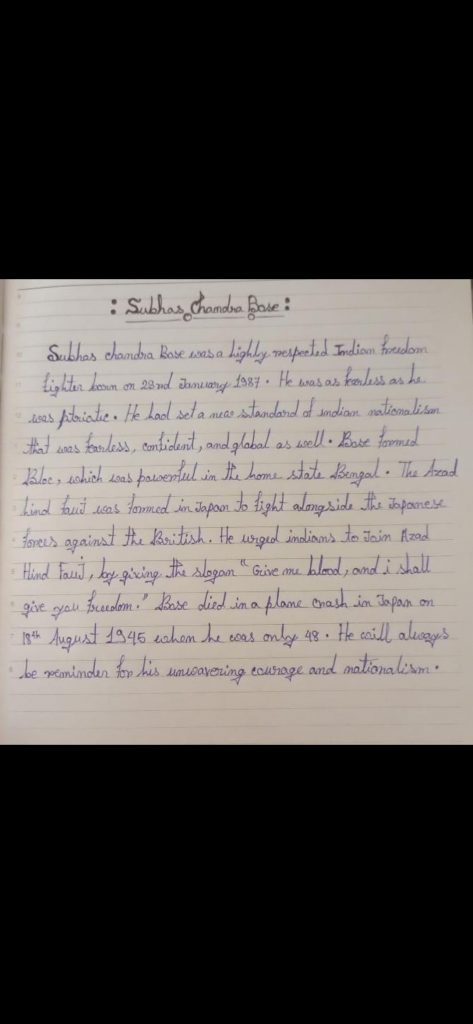 : Subhas Chandra Bose :
Subhas chandra Bose was a highly respected Indian freedom
fighter born on 23rd January 1987. He was as fearless as he
was patriotic. He had set a new standard of indian nationalism
that was fearless, confident, and global as well. Bose formed
Bloc, which was powerful in the home state Bengal. The Azad
hind fauj was formed in Japan to fight alongside the Japanese
forces against the British. He urged indians to Join Azad
Hind Fauj, by giving the slogan "Give me blood, and i shall
give you freedom." Bose died in a plane crash in Japan on
18th August 1945 when he was only 48. He will always
be reminder for his unwavering courage and nationalism.